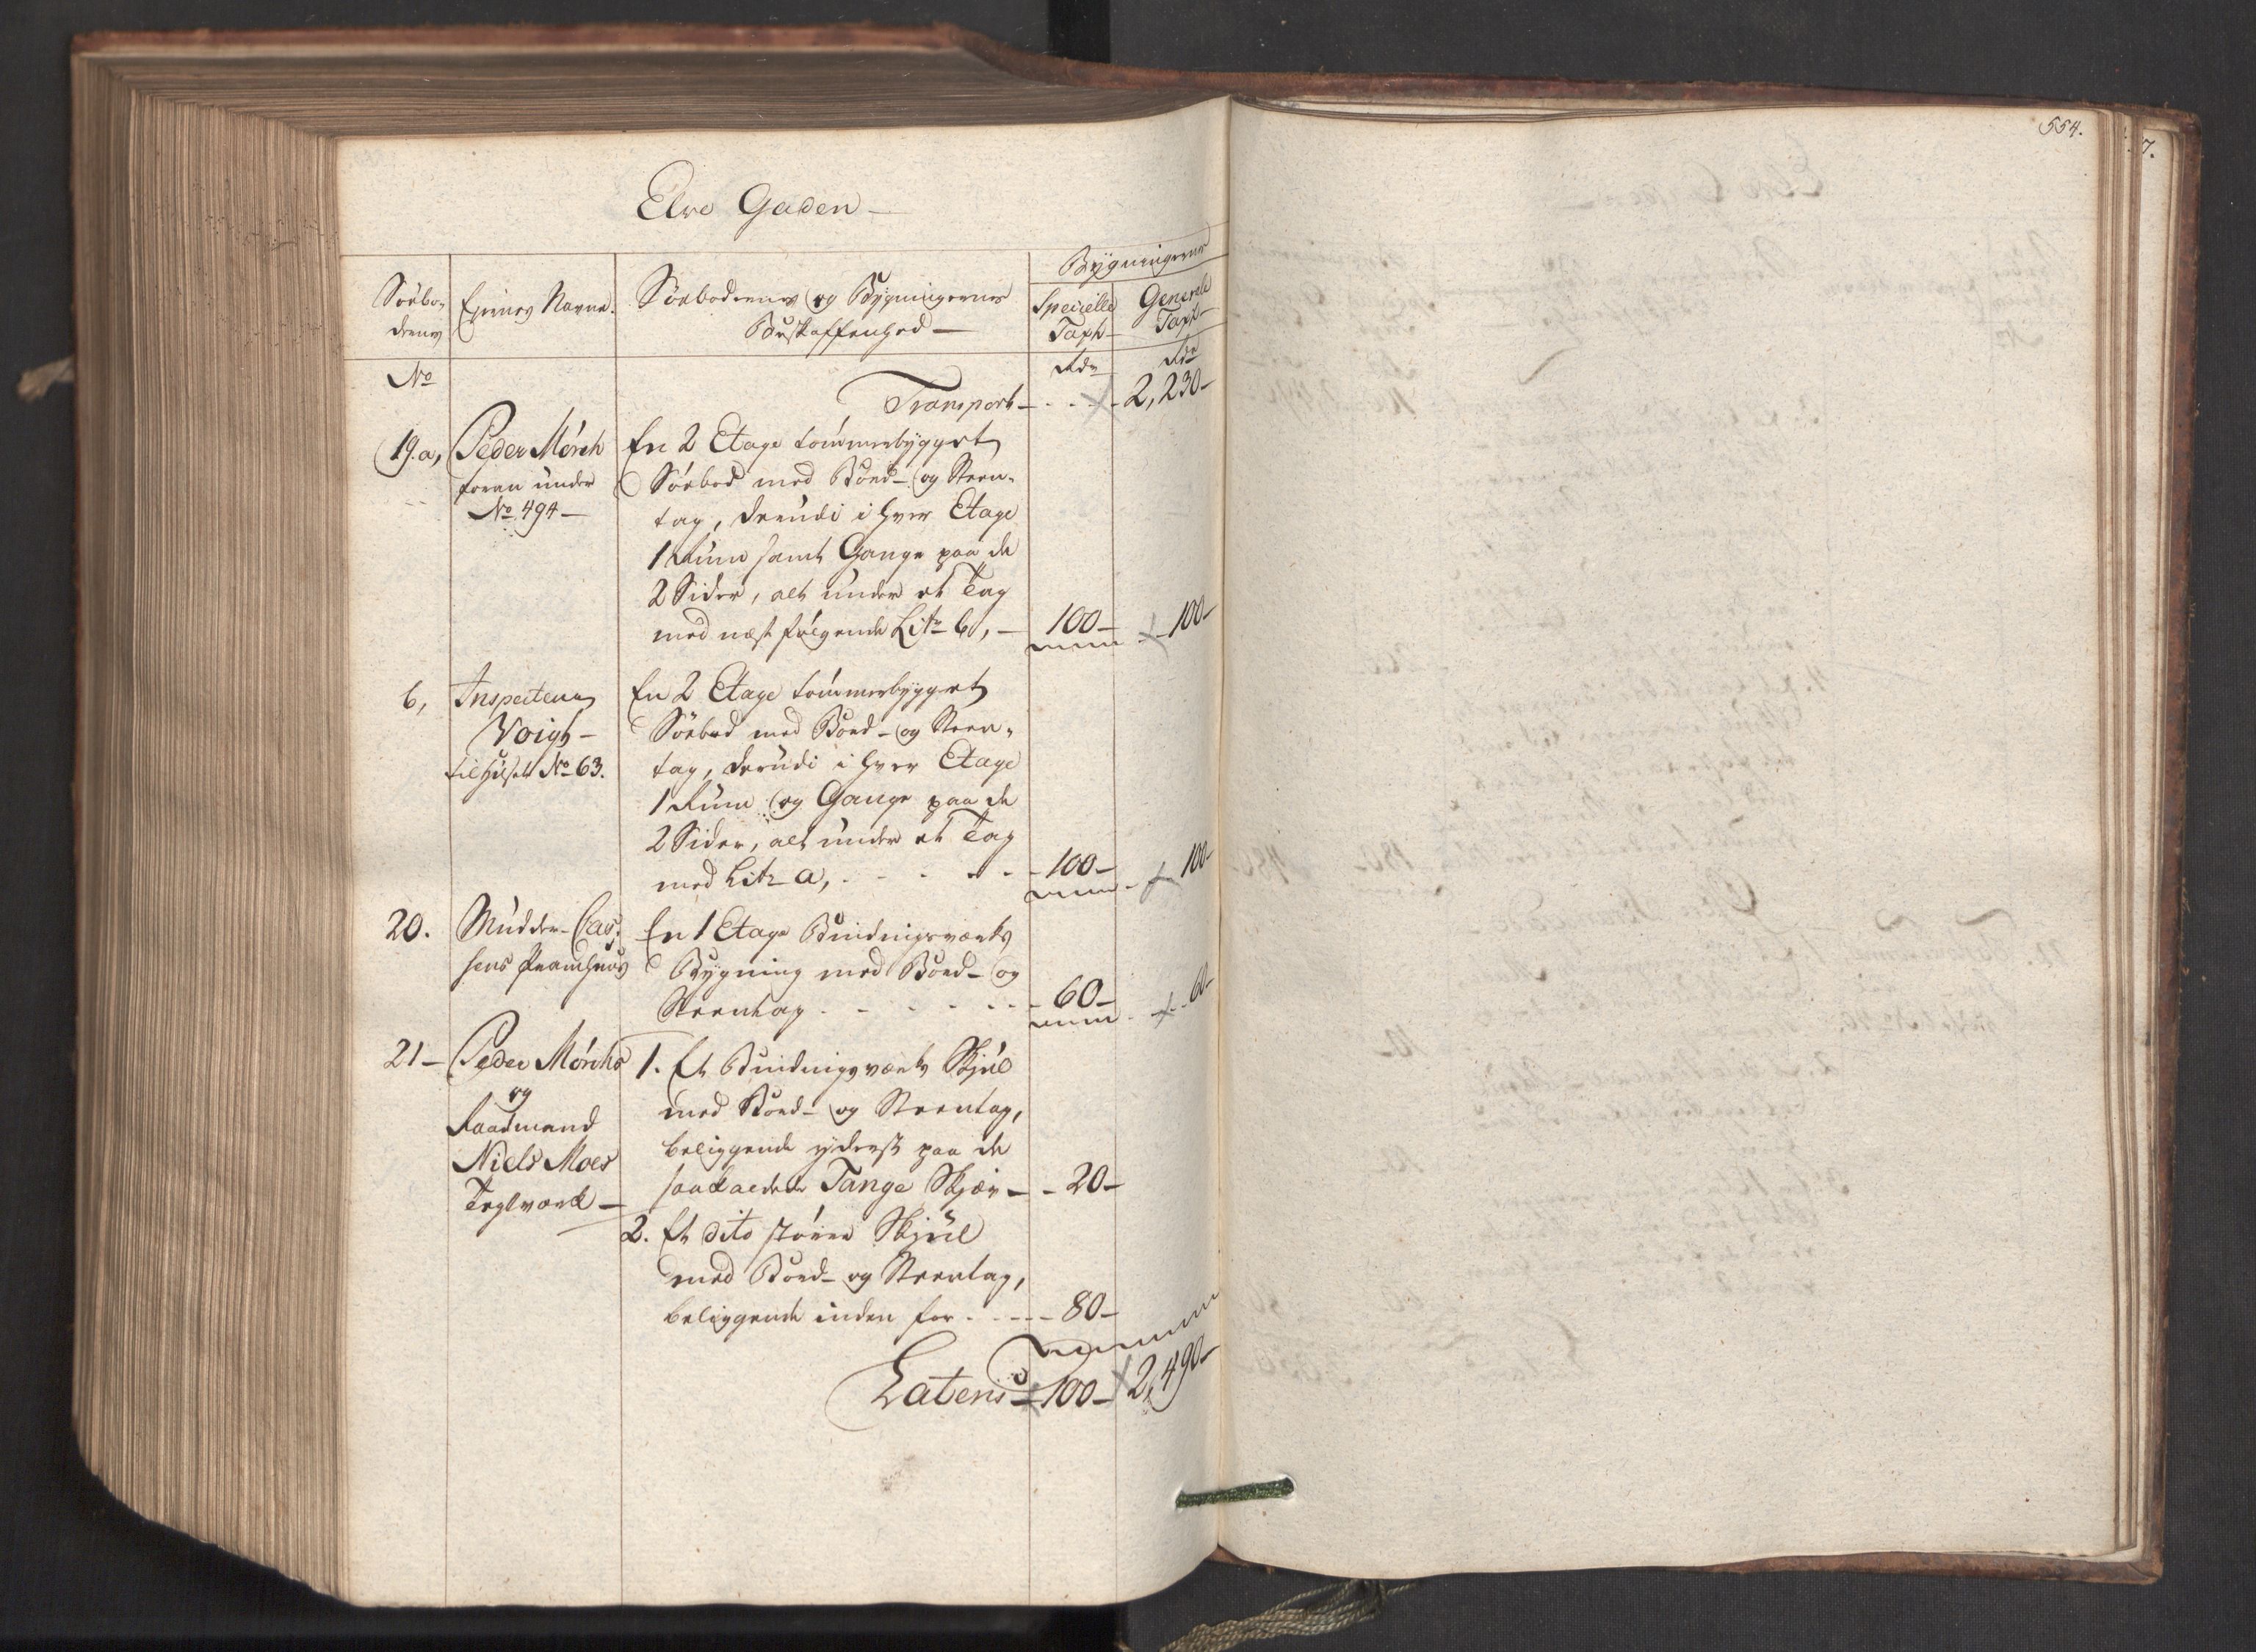 554.
7.
Elve Gaden
Bygningernes
Söebo-
dernes
Eiernes Navne.
Söebodernes og Bygningernes
Beskaffenhed
Specielle
Taxt
Generale
Taxt
No
Rdr
Rdr
Transport - 2,230
19. a, Peder Mörch
foran under
No 494
En 2 Etage tømmerbygget
Söebod med Bord- og Steen-
tag, derudi i hver Etage
1 Rum samt Gange paa de
2 Sider, alt under et Tag
med næst følgende Litr b, 100 100
b, Inspecteur
Voigt
til Huset No 63.
En 2 Etage tømmerbygget
Söebod med Bord- og Steen-
tag, derudi i hver Etage
1 Rum og Gange paa de
2 Sider, alt under et Tag
med Litr a, 100 100
20. Mudder-Cas-
sens Pramhuus
En 1 Etage Bindingsværks
Bygning med Bord- og
Steentag 60 60
21 Peder Mörchs
og
Raadmand
Niels Moes
Teglværk
1. Et Bindingsværks Skjul
med Bord- og Steentag,
beliggende yderst paa de
saakaldede Tange Skjær 20
2. Et dito større Skjul
med Bord- og Steentag,
beliggende inden for 80
Lateris 100 2,490